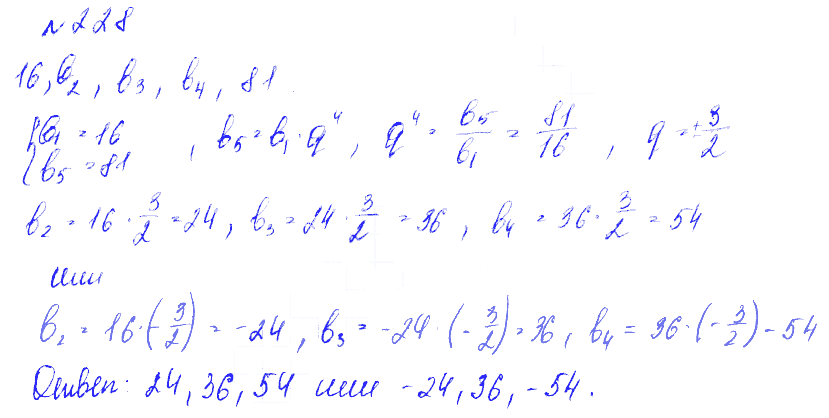 №228
16, b₂, b₃, b₄, 81.
{b₁ = 16
{b₅ = 81 , b₅ = b₁ · q⁴, q⁴ = b₅/b₁ = 81/16, q = ±3/2
b₂ = 16 · 3/2 = 24, b₃ = 24 · 3/2 = 36, b₄ = 36 · 3/2 = 54
или
b₂ = 16 · (-3/2) = -24, b₃ = -24 · (-3/2) = 36, b₄ = 36 · (-3/2) - 54
Ответ: 24, 36, 54 или -24, 36, -54.